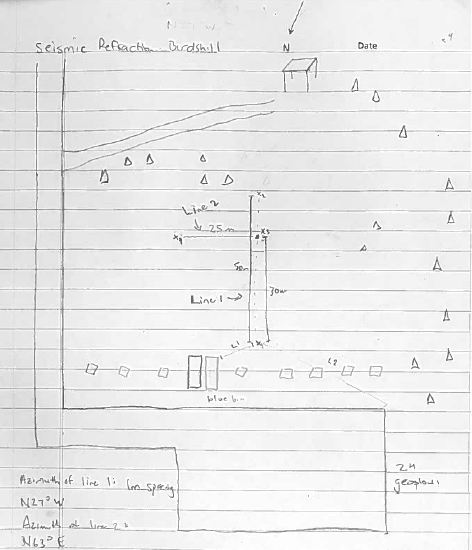 Seismic Refraction Birdshill
N
Date
x2
Line 2
25m
x3
x4
50m
30m
Line 1
L1
x1
L2
blue bin
24
geophones
Azimuth of line 1: 1m spacing
N27° W
Azimuth of line 2:
N63° E